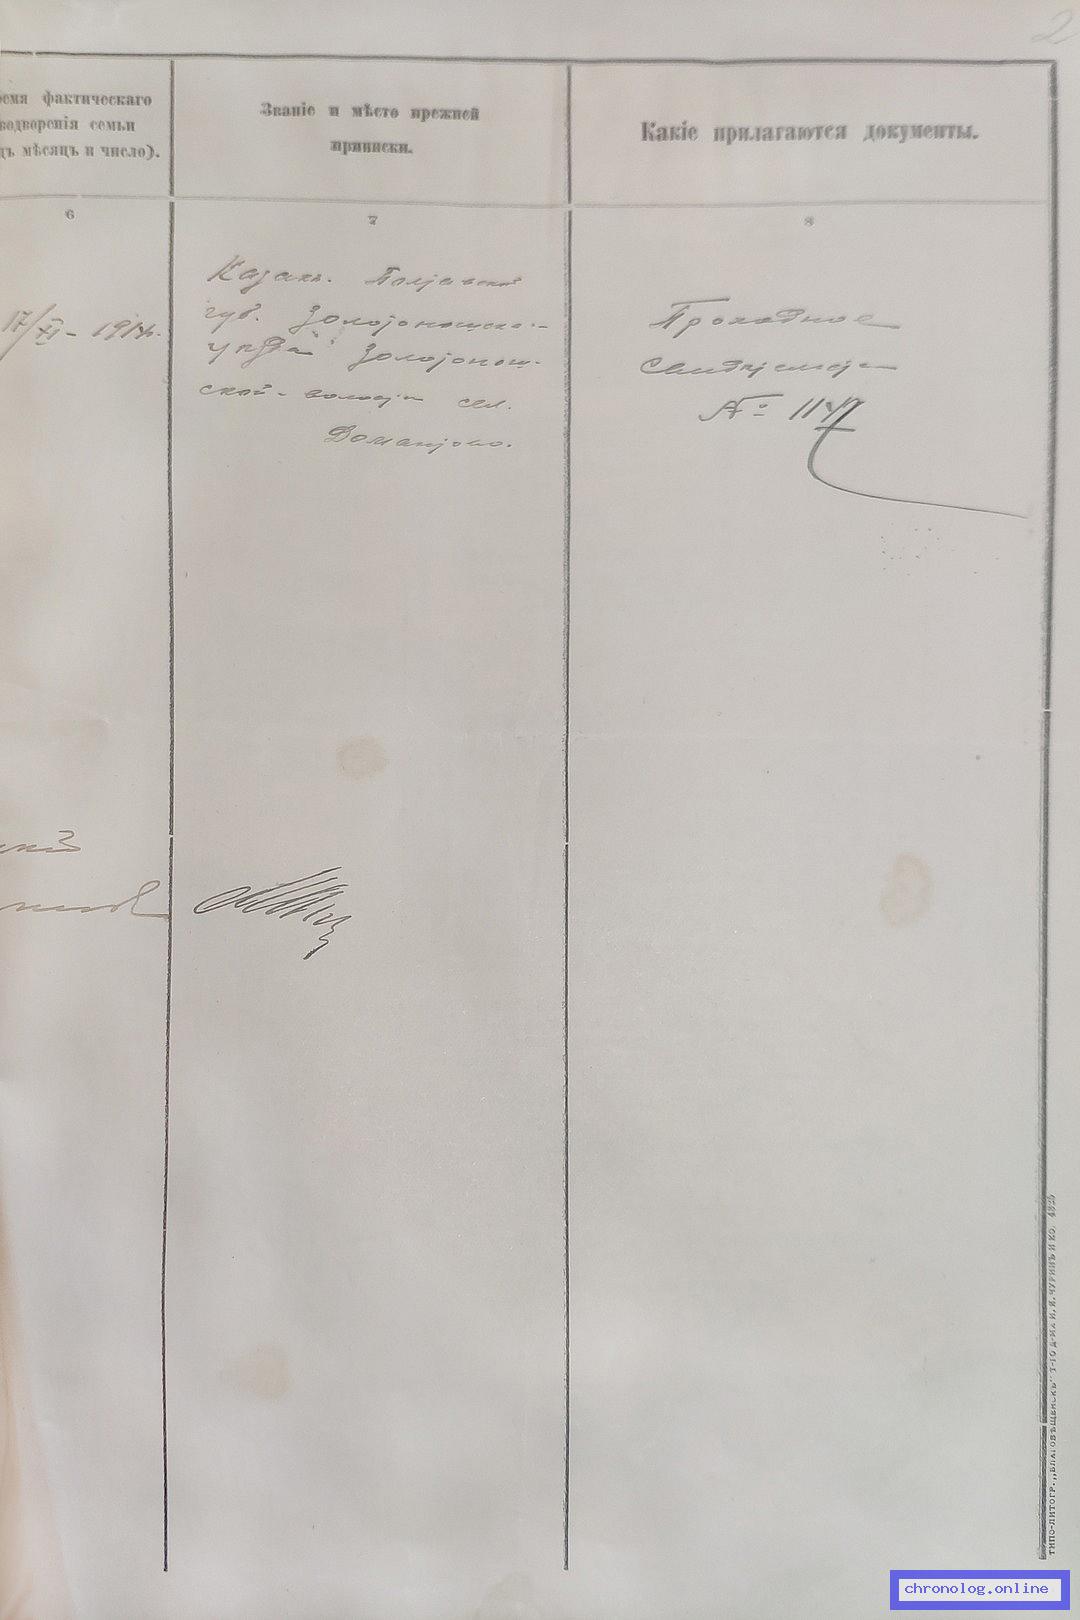 2
ремя фактическаго
водворенія семьи
дъ мѣсяцъ и число).
Званіе и мѣсто прежней
приписки.
Какіе прилагаются документы.
6
7
8
17/XI - 1914 г.
Казакъ. Полтавской
губ. Золотоношско-
уѣзда Золотонош-
ской - волости сел.
Домантово.
Проходное
свидѣтельство
№ 1147
ТИПО-ЛИТОГР. „БЛАГОВѢЩЕНСКЪ" Т-ГО Д-МА И. Я. ЧУРИНЪ И КО. 4325
chronolog.online